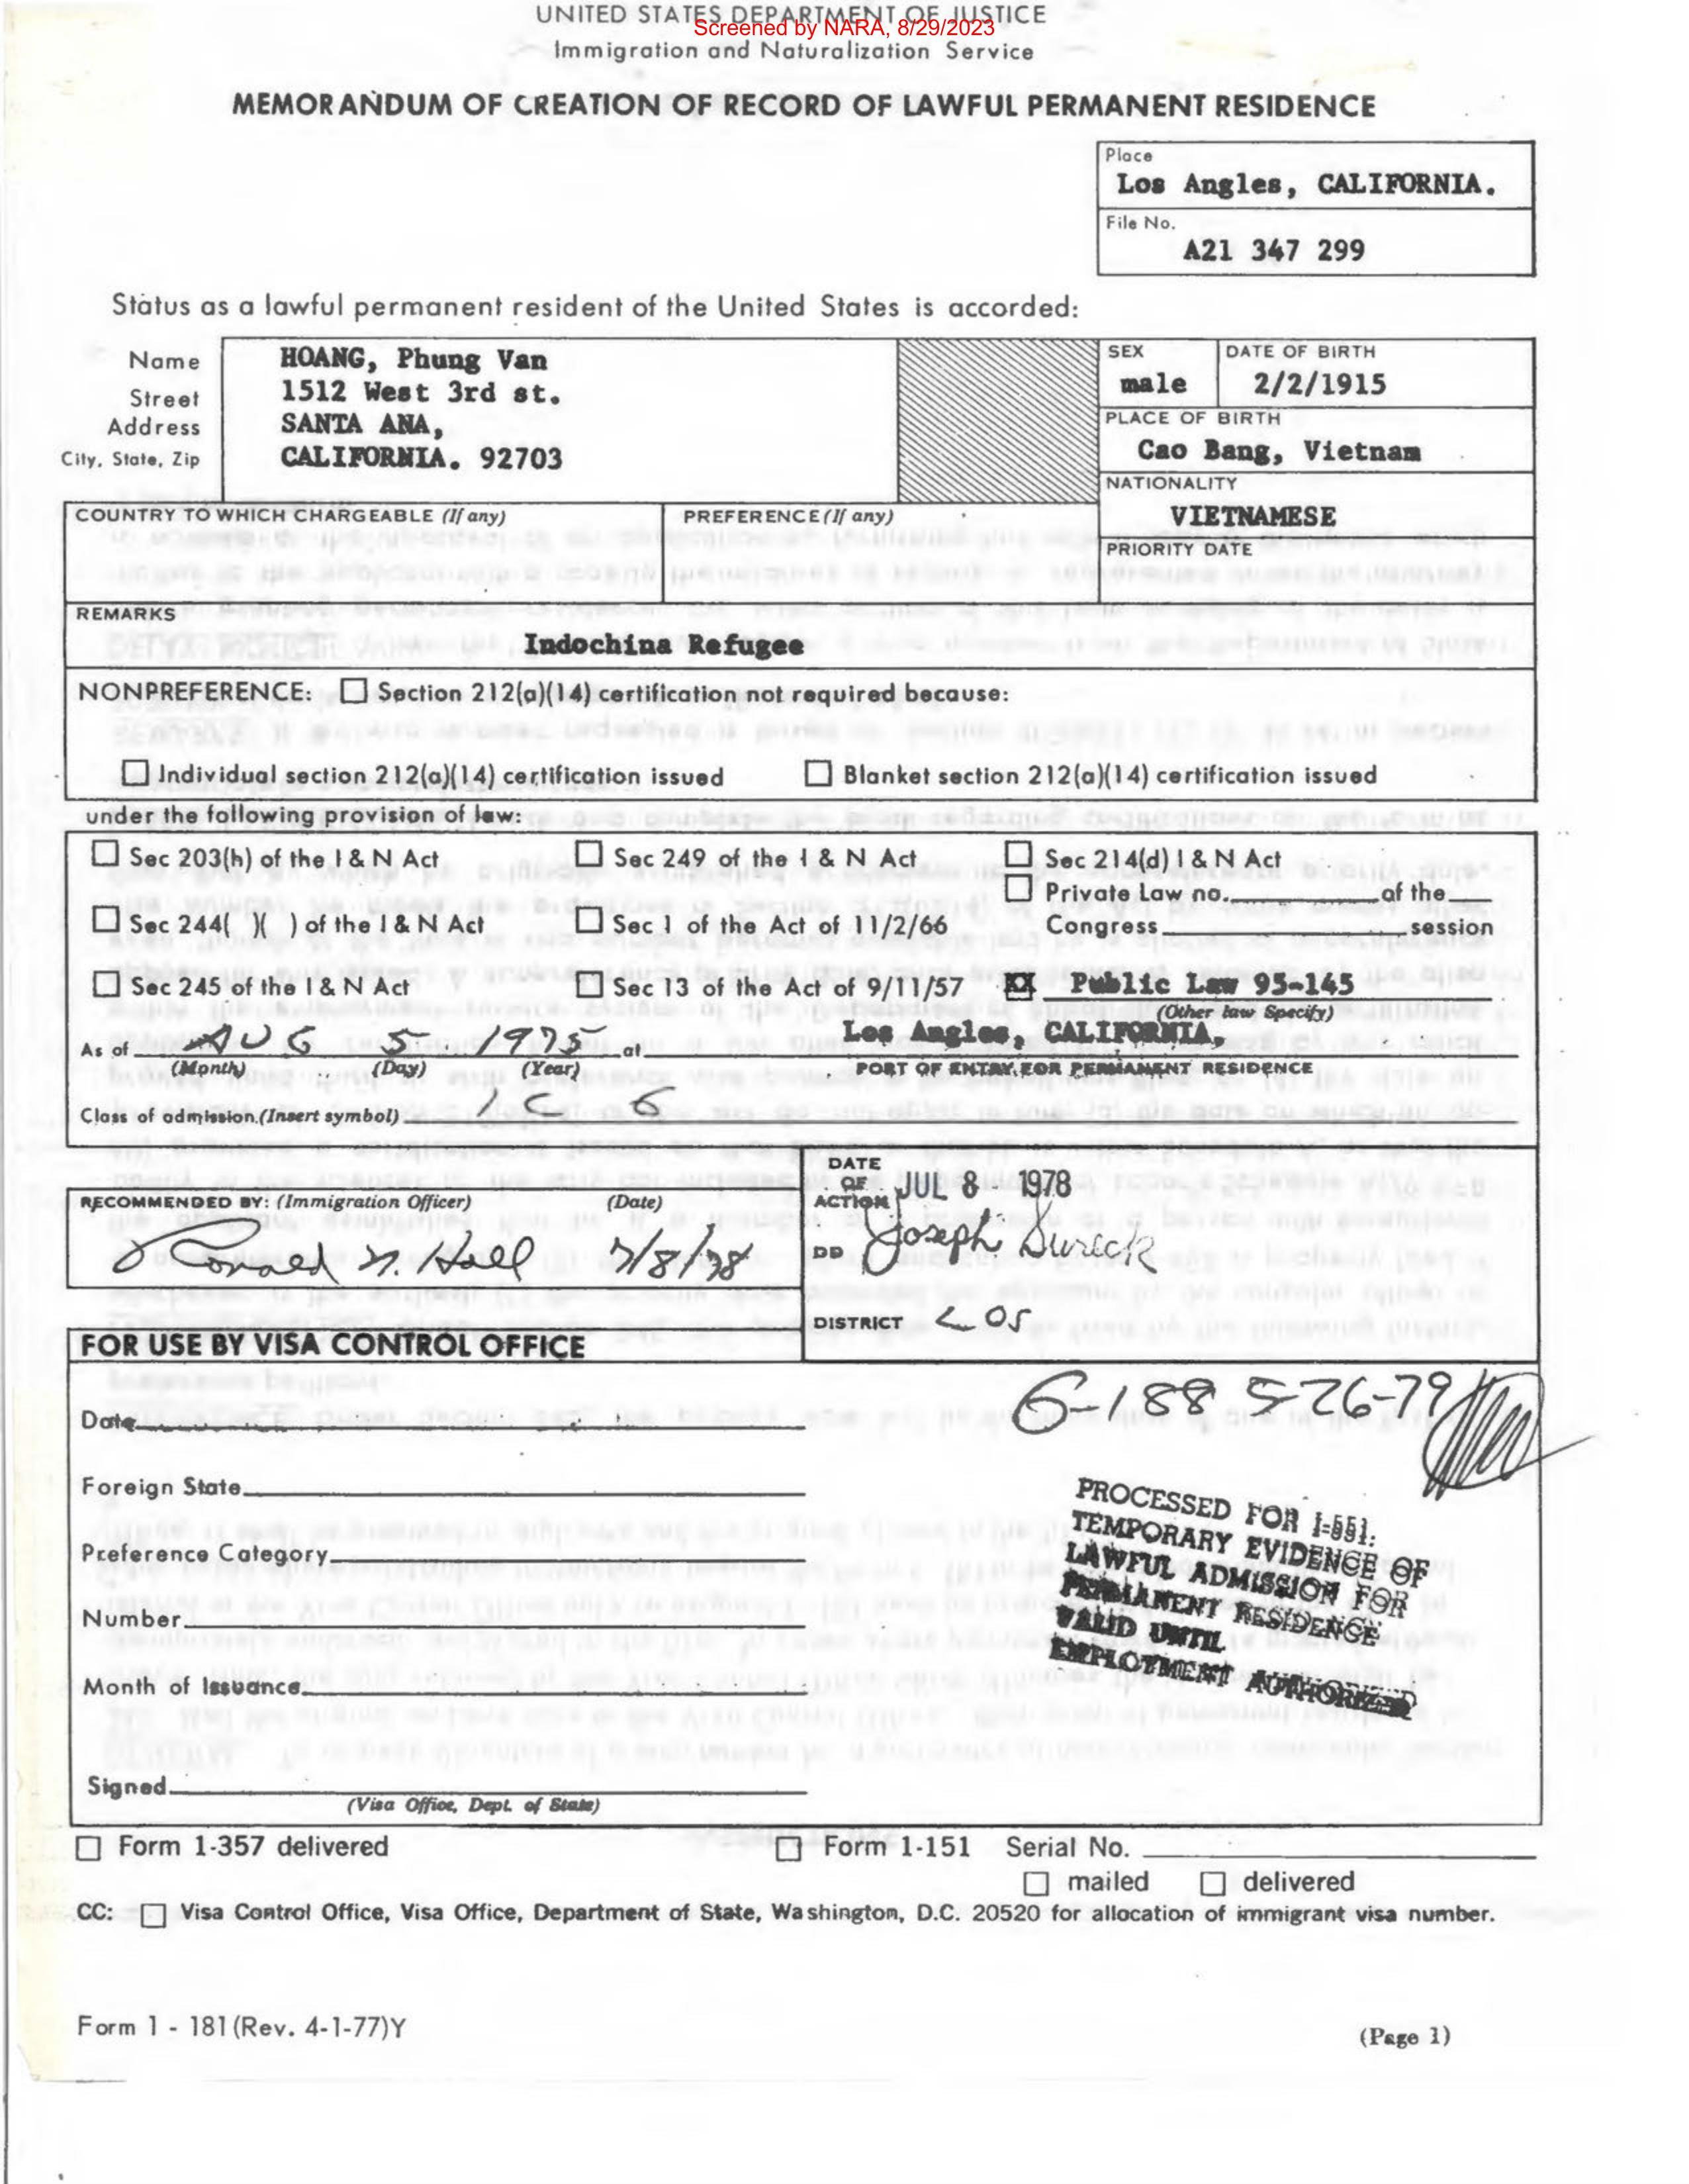 UNITED STATES DEPARTMENT OF JUSTICE
Screened by NARA, 8/29/2023
Immigration and Naturalization Service
MEMORANDUM OF CREATION OF RECORD OF LAWFUL PERMANENT RESIDENCE
Place
Los Angles, CALIFORNIA.
File No.
A21 347 299
Status as a lawful permanent resident of the United States is accorded:
Name HOANG, Phung Van
Street 1512 West 3rd st.
Address SANTA ANA,
City, State, Zip CALIFORNIA. 92703
SEX male
DATE OF BIRTH 2/2/1915
PLACE OF BIRTH
Cao Bang, Vietnam
NATIONALITY
VIETNAMESE
COUNTRY TO WHICH CHARGEABLE (If any)
PREFERENCE (If any)
PRIORITY DATE
REMARKS
Indochina Refugee
NONPREFERENCE: Section 212(a)(14) certification not required because:
Individual section 212(a)(14) certification issued Blanket section 212(a)(14) certification issued
under the following provision of law:
Sec 203(h) of the I & N Act Sec 249 of the I & N Act Sec 214(d) I & N Act
Private Law no. of the
Sec 244( )( ) of the I & N Act Sec 1 of the Act of 11/2/66 Congress session
Sec 245 of the I & N Act Sec 13 of the Act of 9/11/57 XX Public Law 95-145
(Other law Specify)
As of AUG 5 1975 at Los Angles, CALIFORNIA.
(Month) (Day) (Year) PORT OF ENTRY FOR PERMANENT RESIDENCE
Class of admission (Insert symbol) IC 6
RECOMMENDED BY: (Immigration Officer) (Date)
7/8/78
DATE OF ACTION JUL 8 - 1978
DD Joseph Sureck
DISTRICT LOS
FOR USE BY VISA CONTROL OFFICE
6-188 5-26-79
Date
Foreign State
Preference Category
Number
Month of Issuance
Signed
(Visa Office, Dept. of State)
PROCESSED FOR I-551.
TEMPORARY EVIDENCE OF
LAWFUL ADMISSION FOR
PERMANENT RESIDENCE
VALID UNTIL
EMPLOYMENT AUTHORIZED
Form 1-357 delivered Form 1-151 Serial No.
mailed delivered
CC: Visa Control Office, Visa Office, Department of State, Washington, D.C. 20520 for allocation of immigrant visa number.
Form 1 - 181 (Rev. 4-1-77)Y
(Page 1)